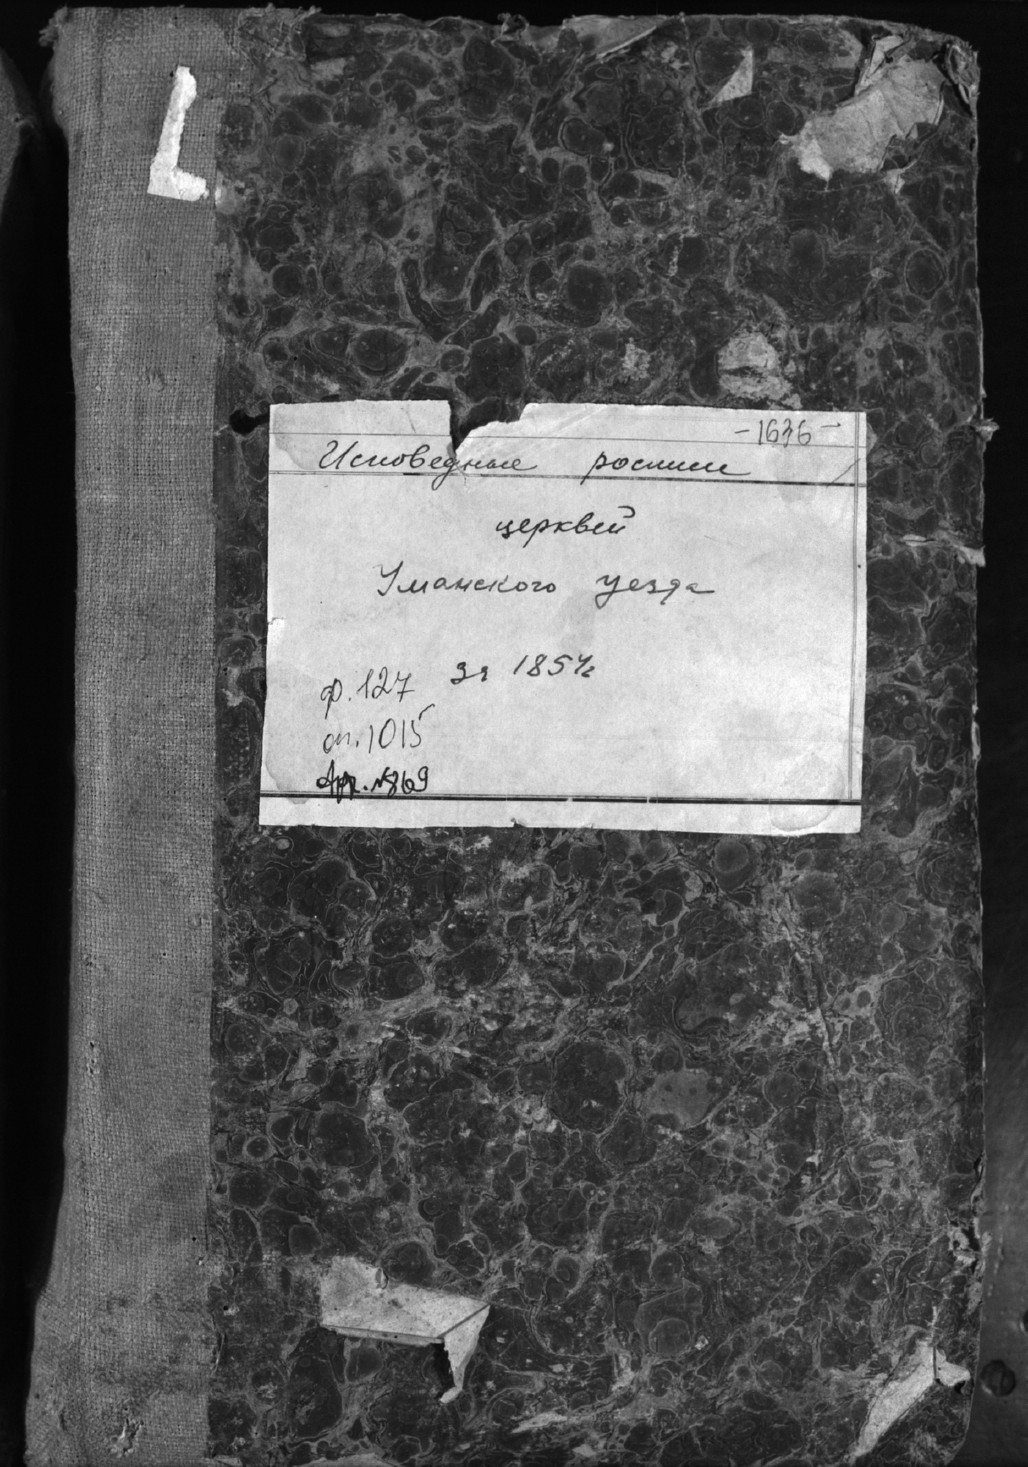 -1636-
Исповедные росписи
церквей
Уманского уезда
за 1854г
ф.127
оп.1015
Арх. №869